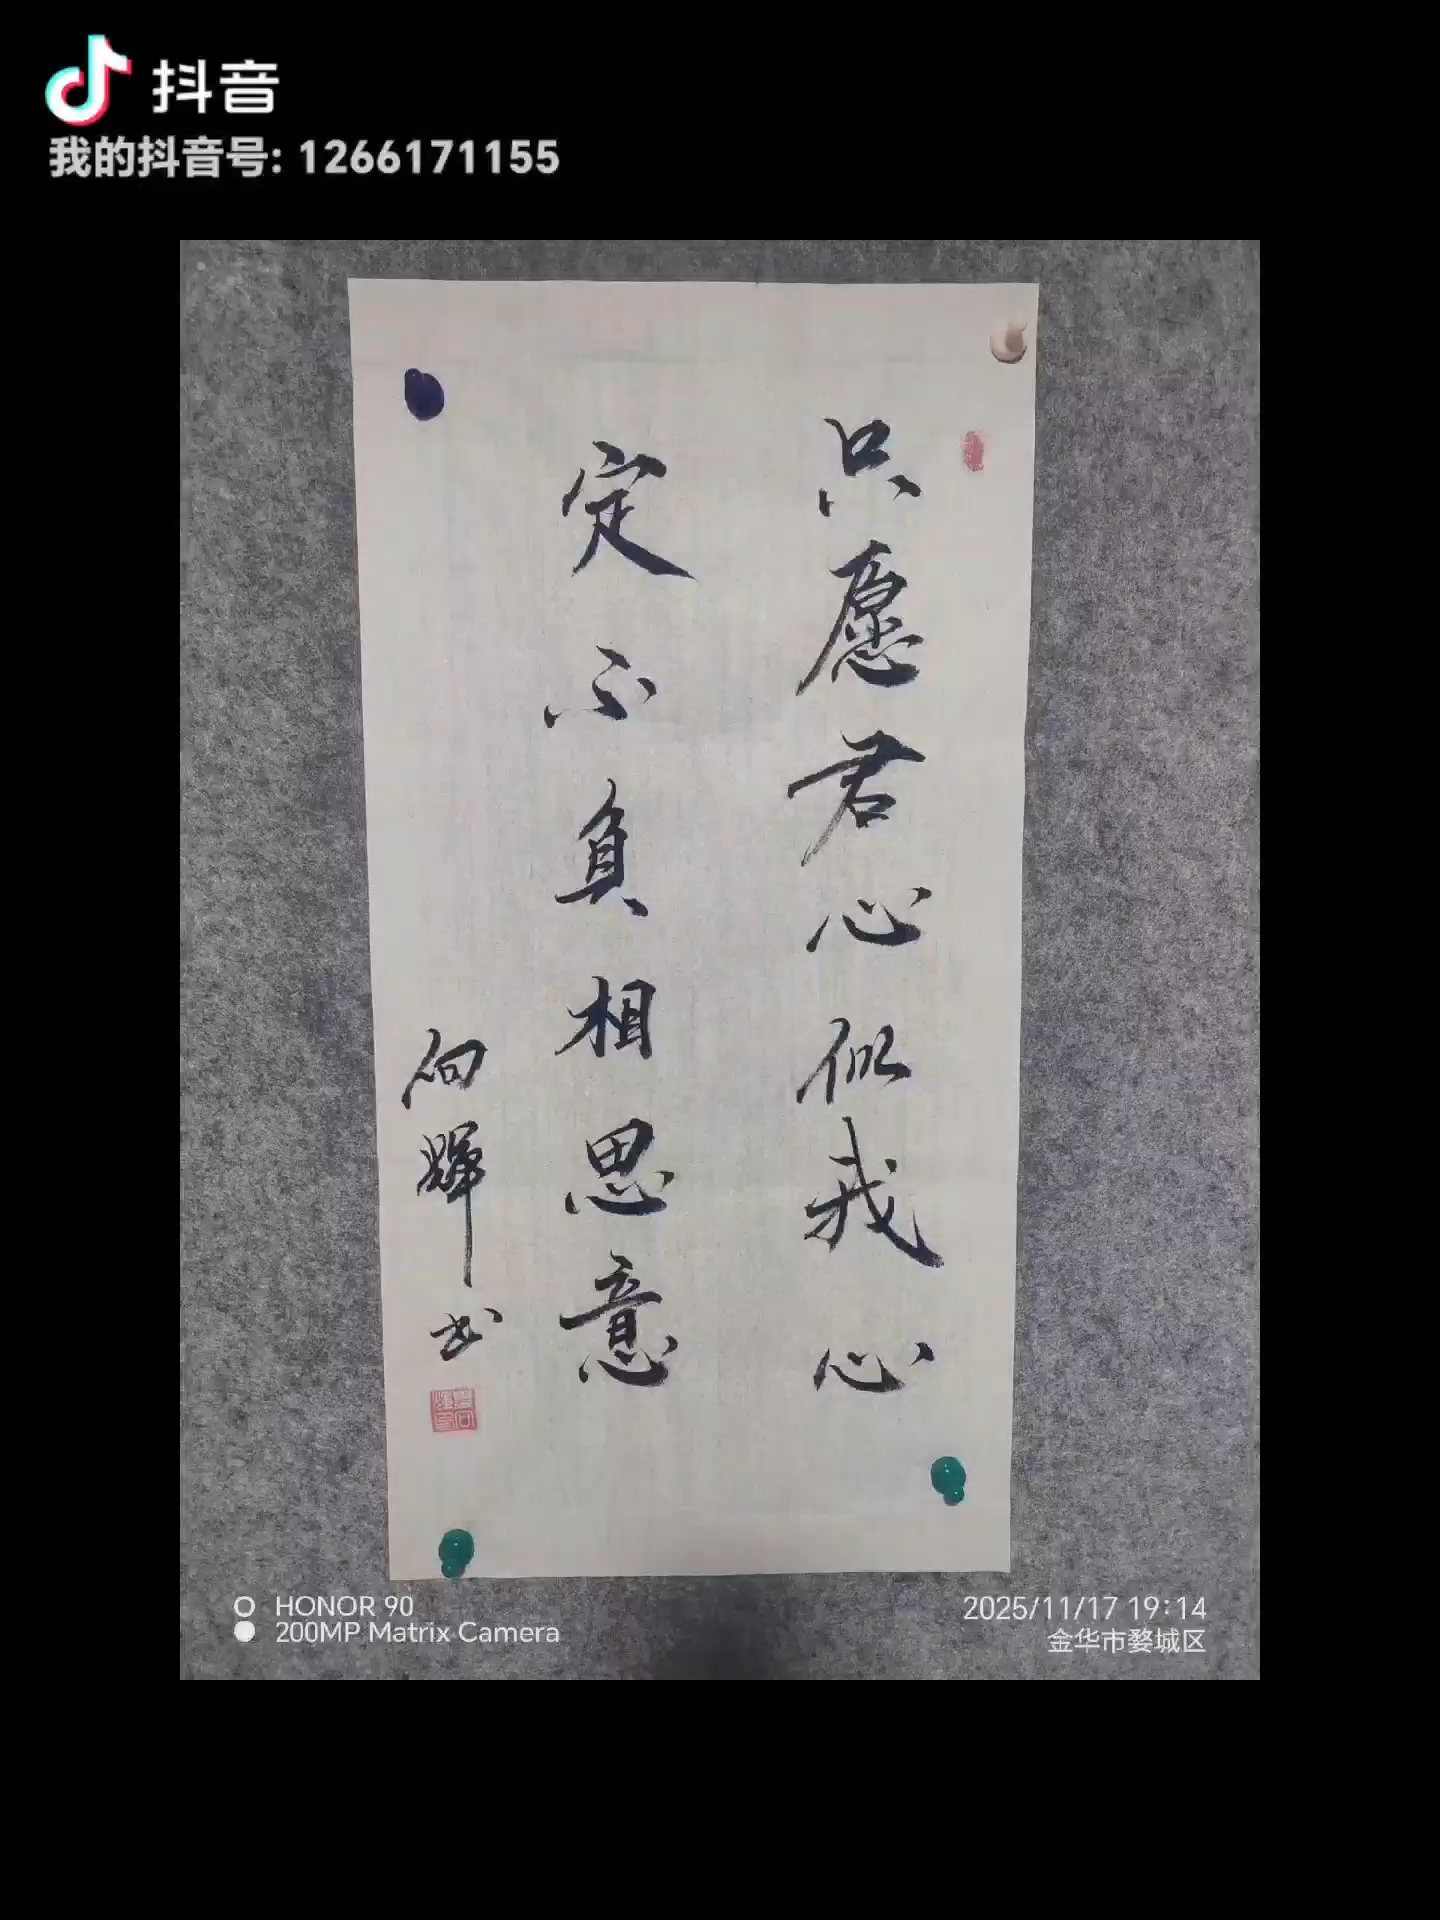 抖音
我的抖音号: 1266171155
只愿君心似我心
定不负相思意
向辉书
HONOR 90
200MP Matrix Camera
2025/11/17 19:14
金华市婺城区